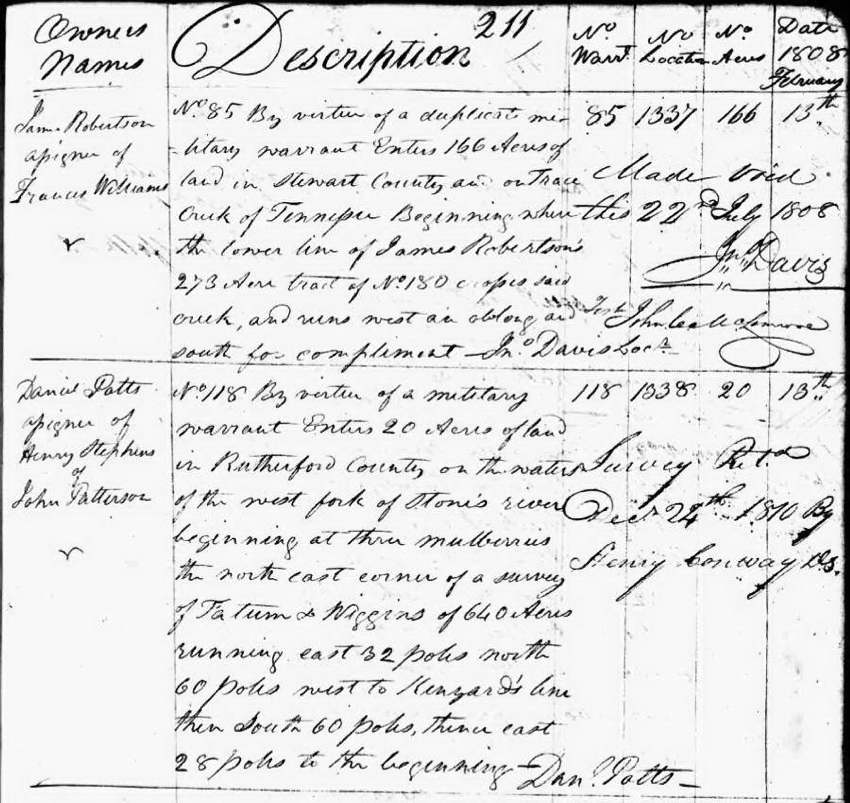 211
Owners Names
Description
No Warrt
No Location
No Acres
Date 1808 February
James Robertson
assignee of
Francis Williams
No. 85 By virtue of a duplicate mi-
-litary warrant Enters 166 Acres of
land in Stewart County and on trace
Creek of Tennessee Beginning where
the lower line of James Robertson's
273 Acre tract of No. 180 crosses said
creek, and runs west an oblong and
south for compliment Jno Davis Locr
85 1337 166 13th
Made void
this 22nd July 1808
Jno Davis
Test
Daniel Potts
assignee of
Henry Stephens
of
John Patterson
No. 118 By virtue of a military
warrant Enters 20 Acres of land
in Rutherford County on the waters
of the west fork of Stone's river
beginning at three mulberries
the north east corner of a survey
of Tatum & Wiggins of 640 Acres
running east 32 poles north
60 poles west to Kenyard's line
then South 60 poles, thence east
28 poles to the beginning Danl. Potts
118 1338 20 13th
Survey Retd
Decr 24th 1810 By
Henry Conway Ds.